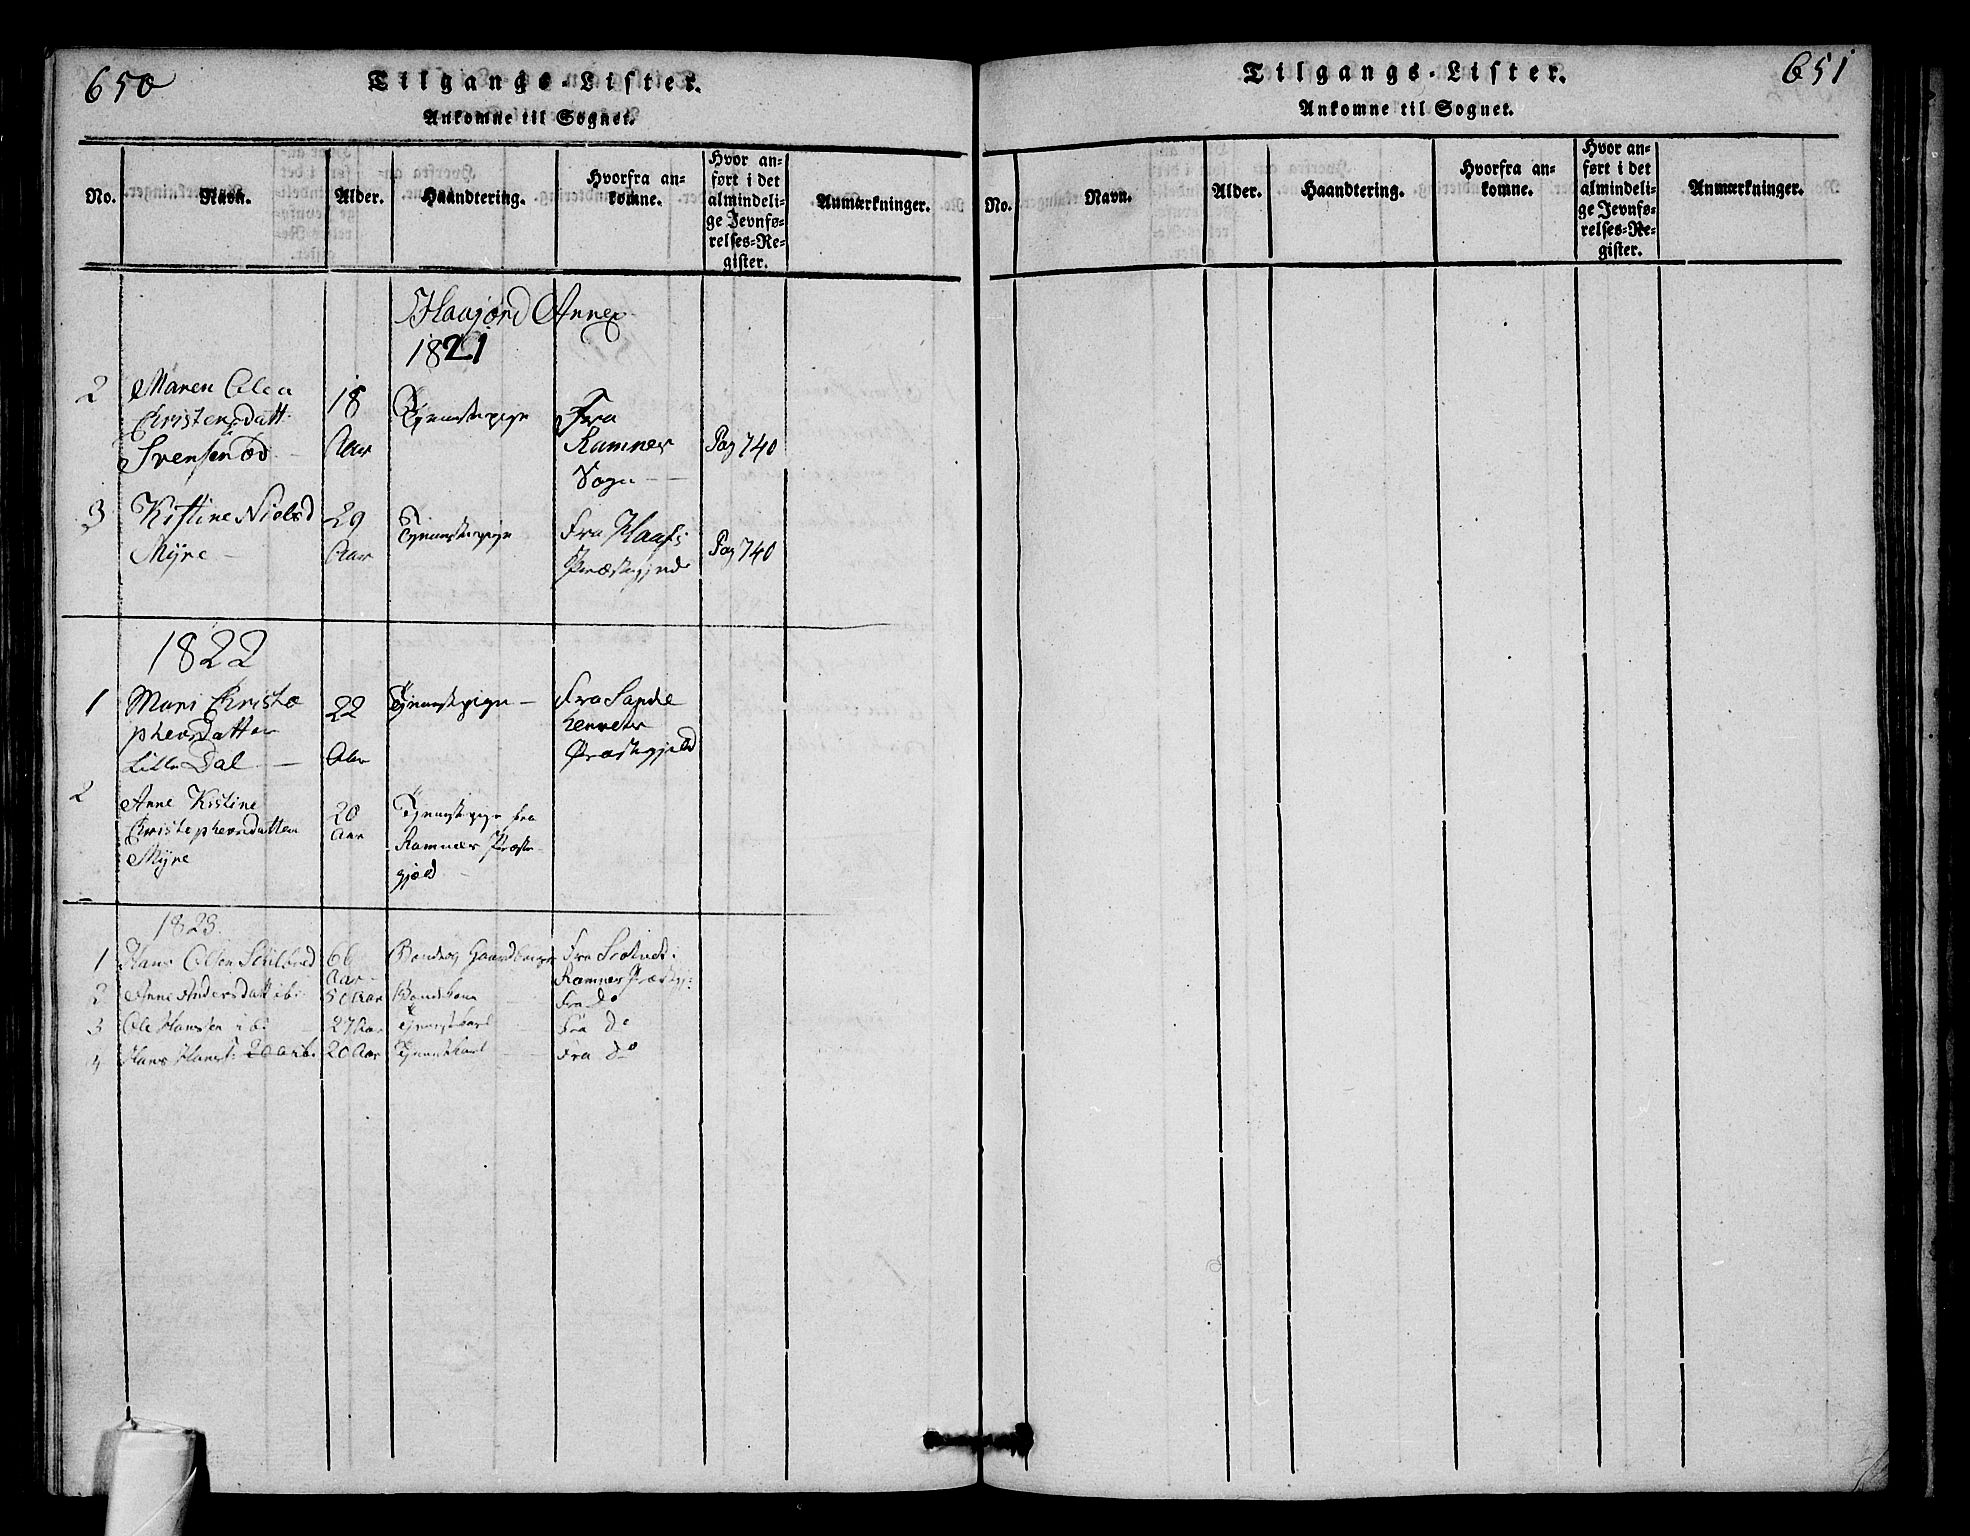 650
Tilgangs-Lister.
Ankomne til Sognet.
No. Navn. Alder. Haandtering. Hvorfra ankomne. Hvor anført i det almindelige Jevnførelses-Register. Anmærkninger.
Annex
1821
2 Maren Olea 18
Christensdatt. Aar Tjenestepige Fra
Svensenød Ramnes Pag 740
Sogn
3 Kistine Nielsd 29 Tjenestepige Fra
Myre Aar Præstegjeld Pag 740
1822
1 Mari Christo 22 Tjenestepige Fra Sande
phersdatter
Lille Dal Aar Præstegjeld
2 Anne Kistine 20 Tjenestepige fra
Christophersdatter Aar Ramnæs Præste
Myre gjæld
1823.
1 Hans Olsen 66 Fra
Aar Ramnes Præstegj:
2 Anne Andersdatt ib: 50 Aar Bondekone Fra do
3 Ole Hanssen ib: 27 Aar Tjenestkarl Fra do
4 Hans Hanss: 20 a ib. 20 Aar Tjenestkarl Fra do
651
Tilgangs-Lister.
Ankomne til Sognet.
No. Navn. Alder. Haandtering. Hvorfra ankomne. Hvor anført i det almindelige Jevnførelses-Register. Anmærkninger.